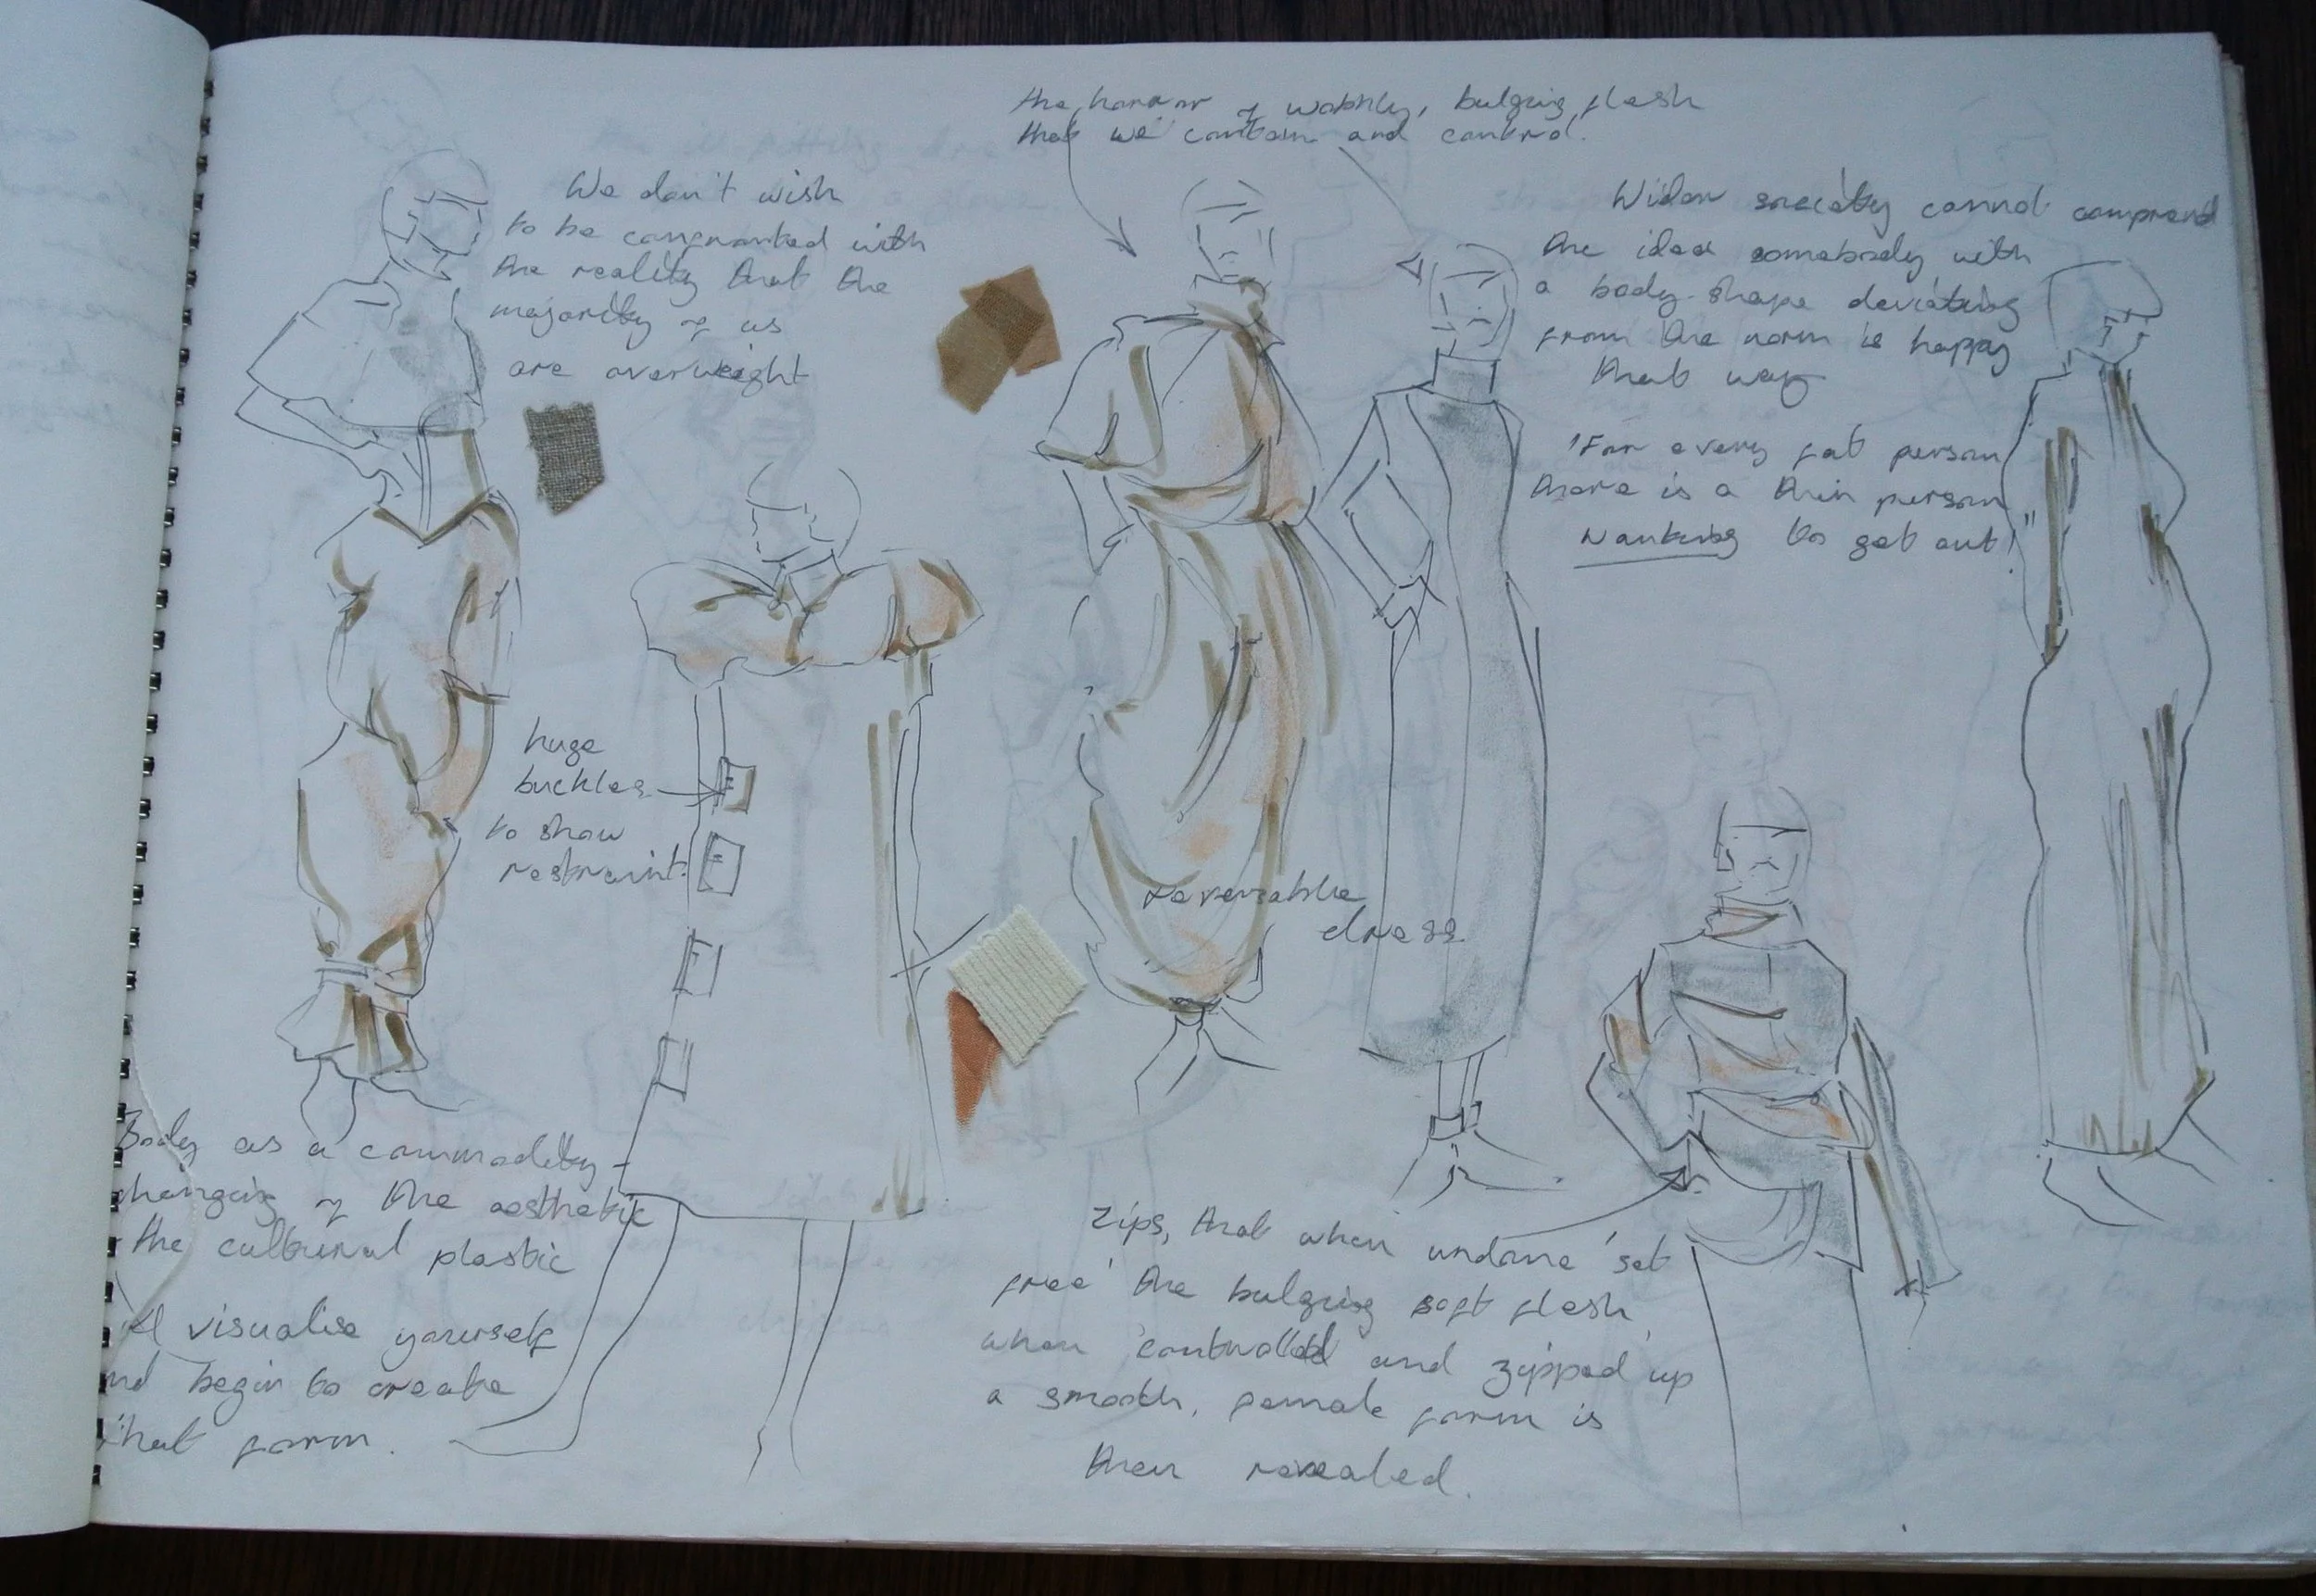 the horror of wobbly, bulging flesh
that we contain and control.
We don't wish
to be confronted with
the reality that the
majority of us
are overweight
Wider society cannot comprend
the idea somebody with
a body shape deviating
from the norm is happy
that way
'For every fat person
there is a thin person
wanting to get out!"
huge
buckles
to show
restraint.
reversable
dress
Body as a commodity -
changing of the aesthetic
the cultural plastic
visualise yourself
and begin to create
that form.
Zips, that when undone 'set
free' the bulging soft flesh,
when controlled and zipped up
a smooth, female form is
then revealed.